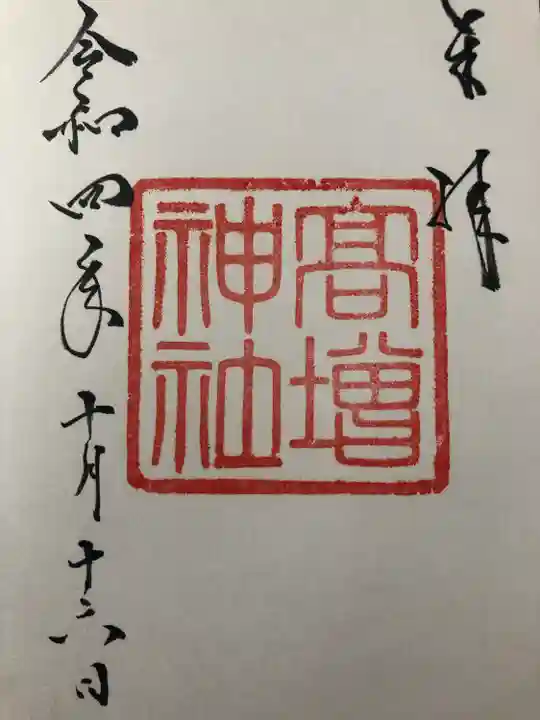 奉拝
高増
神社
令和四年十月十六日